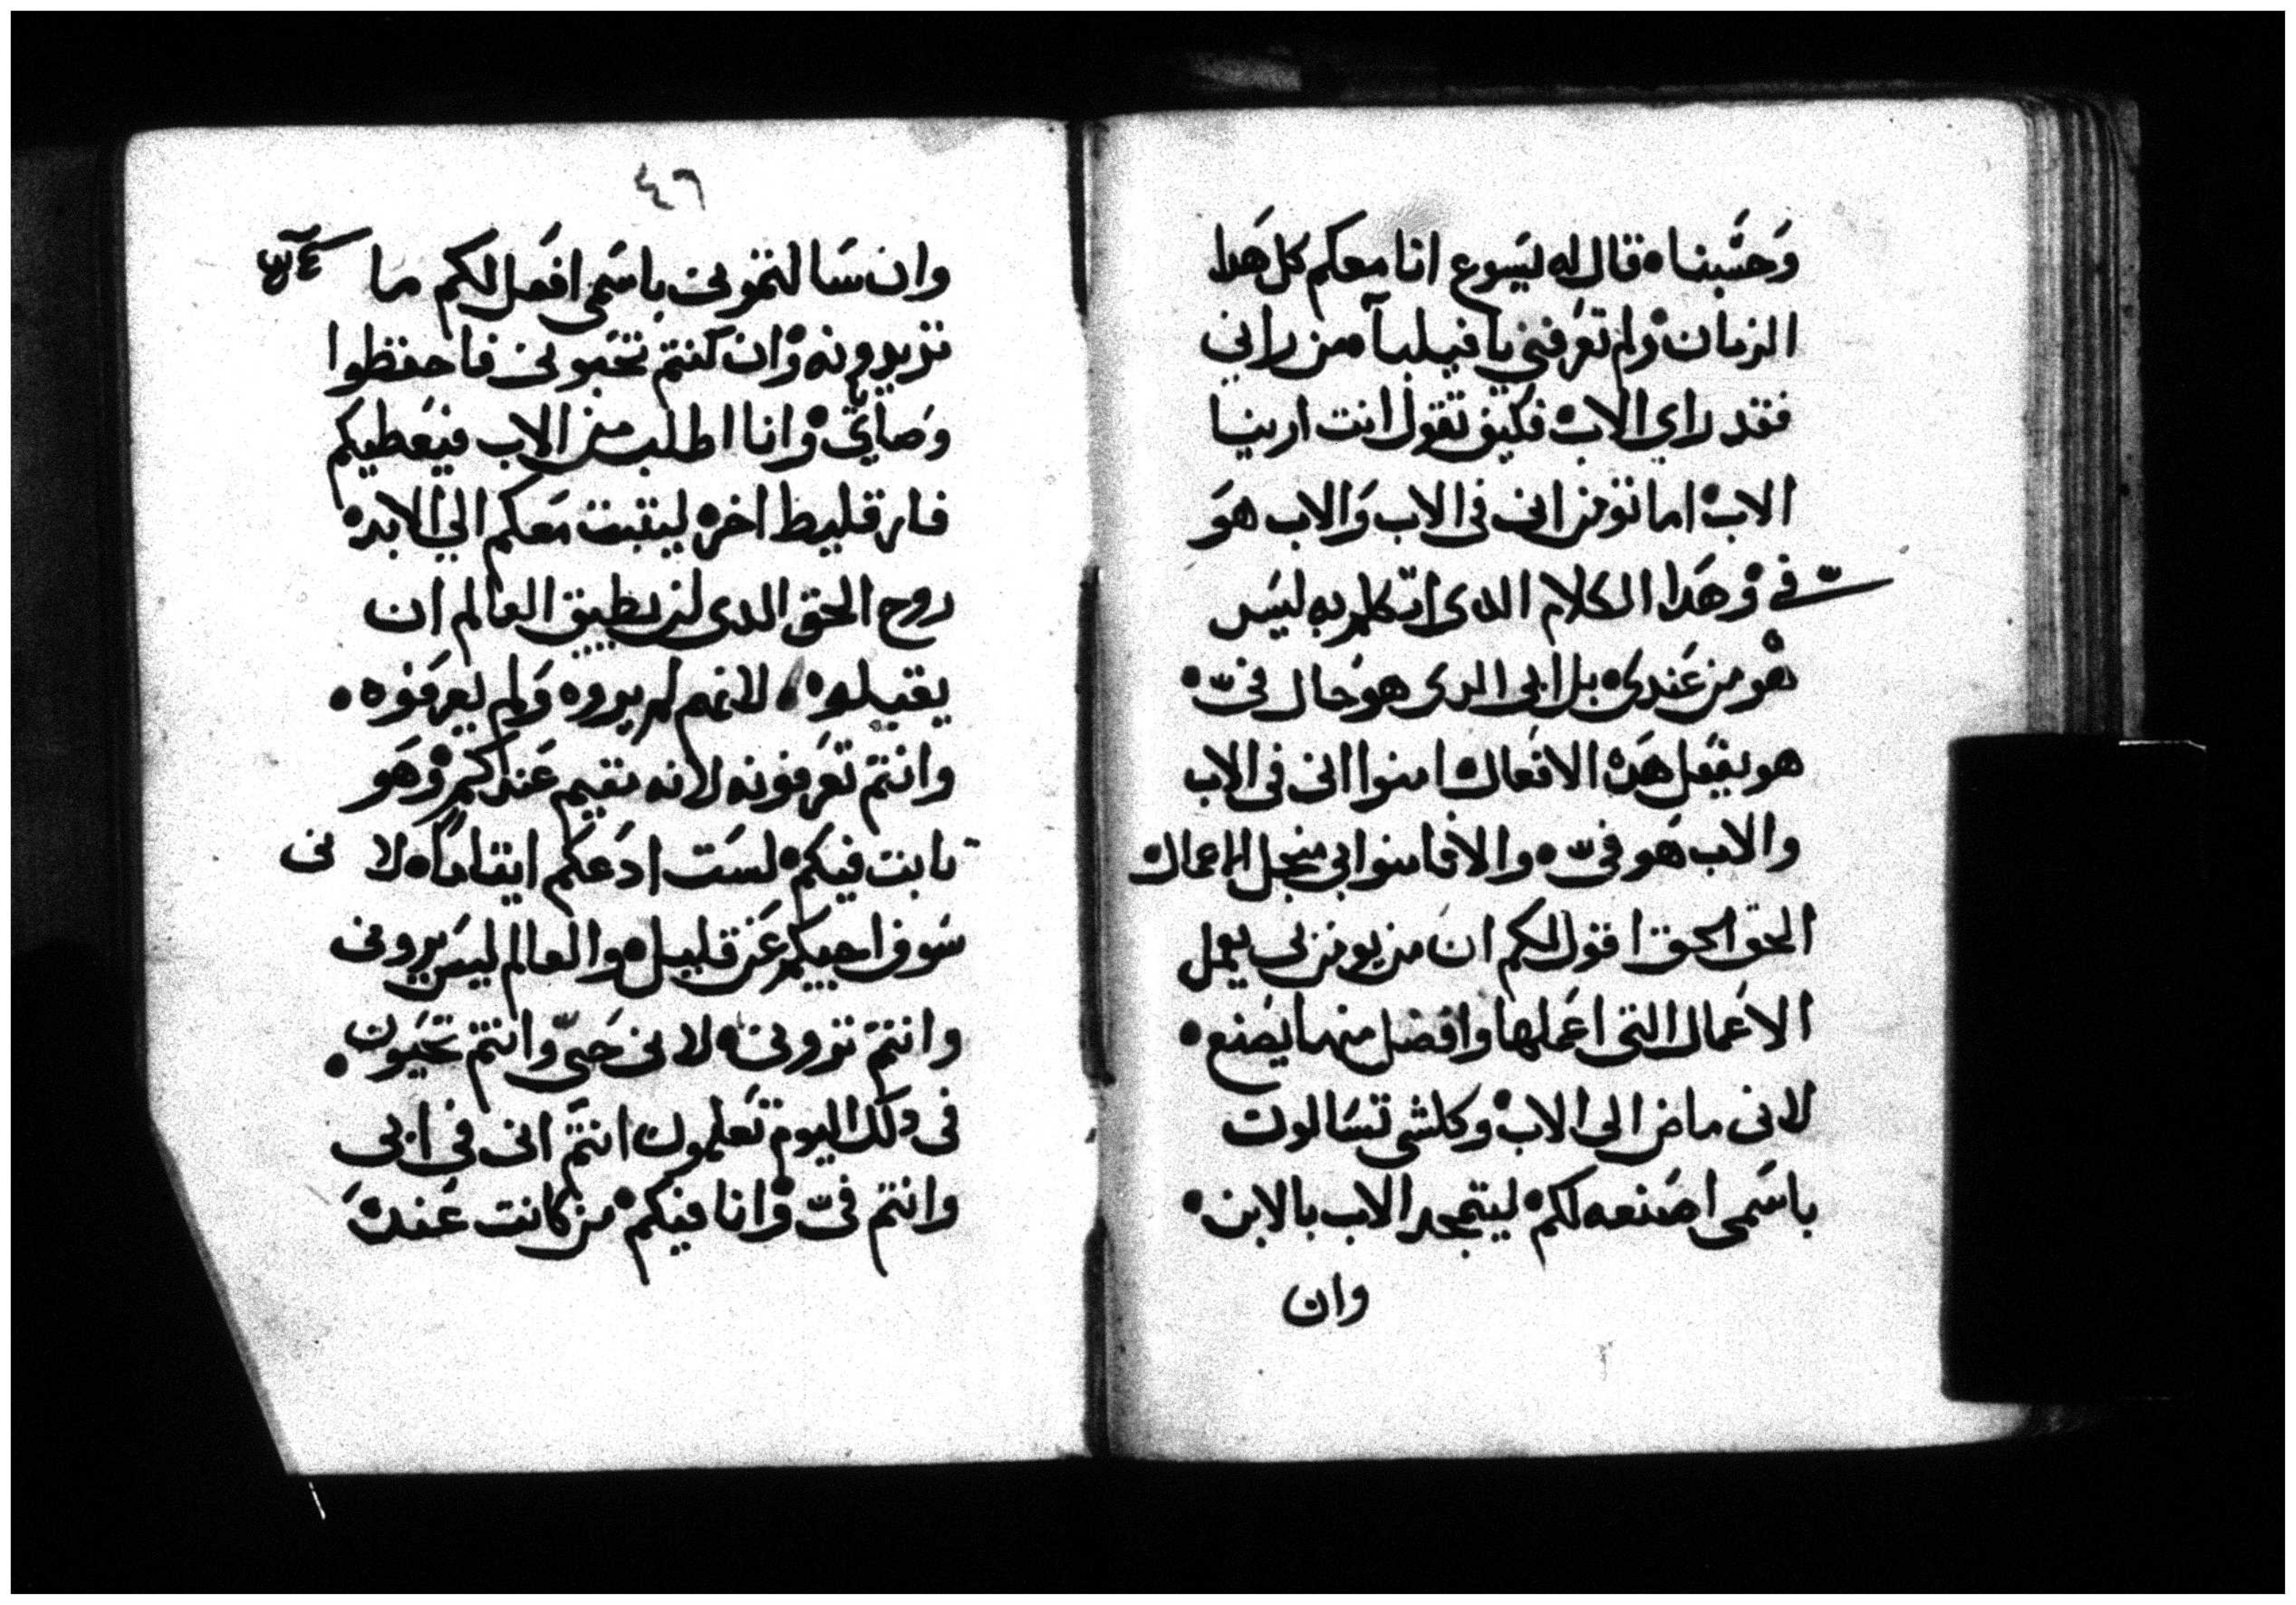 وَحَسْبنا ه قال له يسوع انا معكم كل هدا
الزمان ه ولم تعرفني يا فيلبا ه من راني
فقد راي الاب ه فكيف تقول انت ارينا
الاب ه اما تومن اني في الاب وَالاب هوَ
فيّ ه وهَدا الكلام الدى اتكلم به ليسَ
هو من عَندى ه بل ابى الدى هو حَال فىّ ه
هو يفعل هَده الافعال ه امنوا انى فى الاب
والاب هَو فىّ ه والا فامنوا بى من اجل الاعمال ه
الحق الحق اقول لكم ان من يومن بى يعمل
الاعمال التى اعَملها وافضل منهما يصَنع ه
لانى ماض الى الاب ه وكلشى تسَالون
باسَمى اصَنعه لكم ه ليتمجد الاب بالابن ه
وان
٤٦
وان سَالتمونى باسَمى افعَل لكم ما
تريدونه ه وان كنتم تحَبونى فاحفظوا
وَصاياي ه وانا اطلب من الاب فيعَطيكم
فارقليط اخر ه ليتبت مَعكم الي الابد ه
روح الحق الدى لن يطيق العالم ان
يقبلوه ه لانهم لم يروه وَلم يعرفوه ه
وانتم تعَرفونه لانه مقيم عَندكم ه وهَو
تابت فيكم ه لسَت ادَعكم ايتاما ه لانى
سَوف اجيكم عَن قليل ه والعالم ليسَ يرونى
وانتم ترونى ه لانى حَىّ وانتم تحَيَون ه
فى دلك اليوم تعَلمون انتم انى في ابى
وانتم فىّ ه وانا فيكم ه من كانت عَندهَ